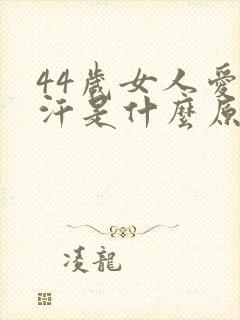 44歲女人愛
汗是什麼原
凌龍